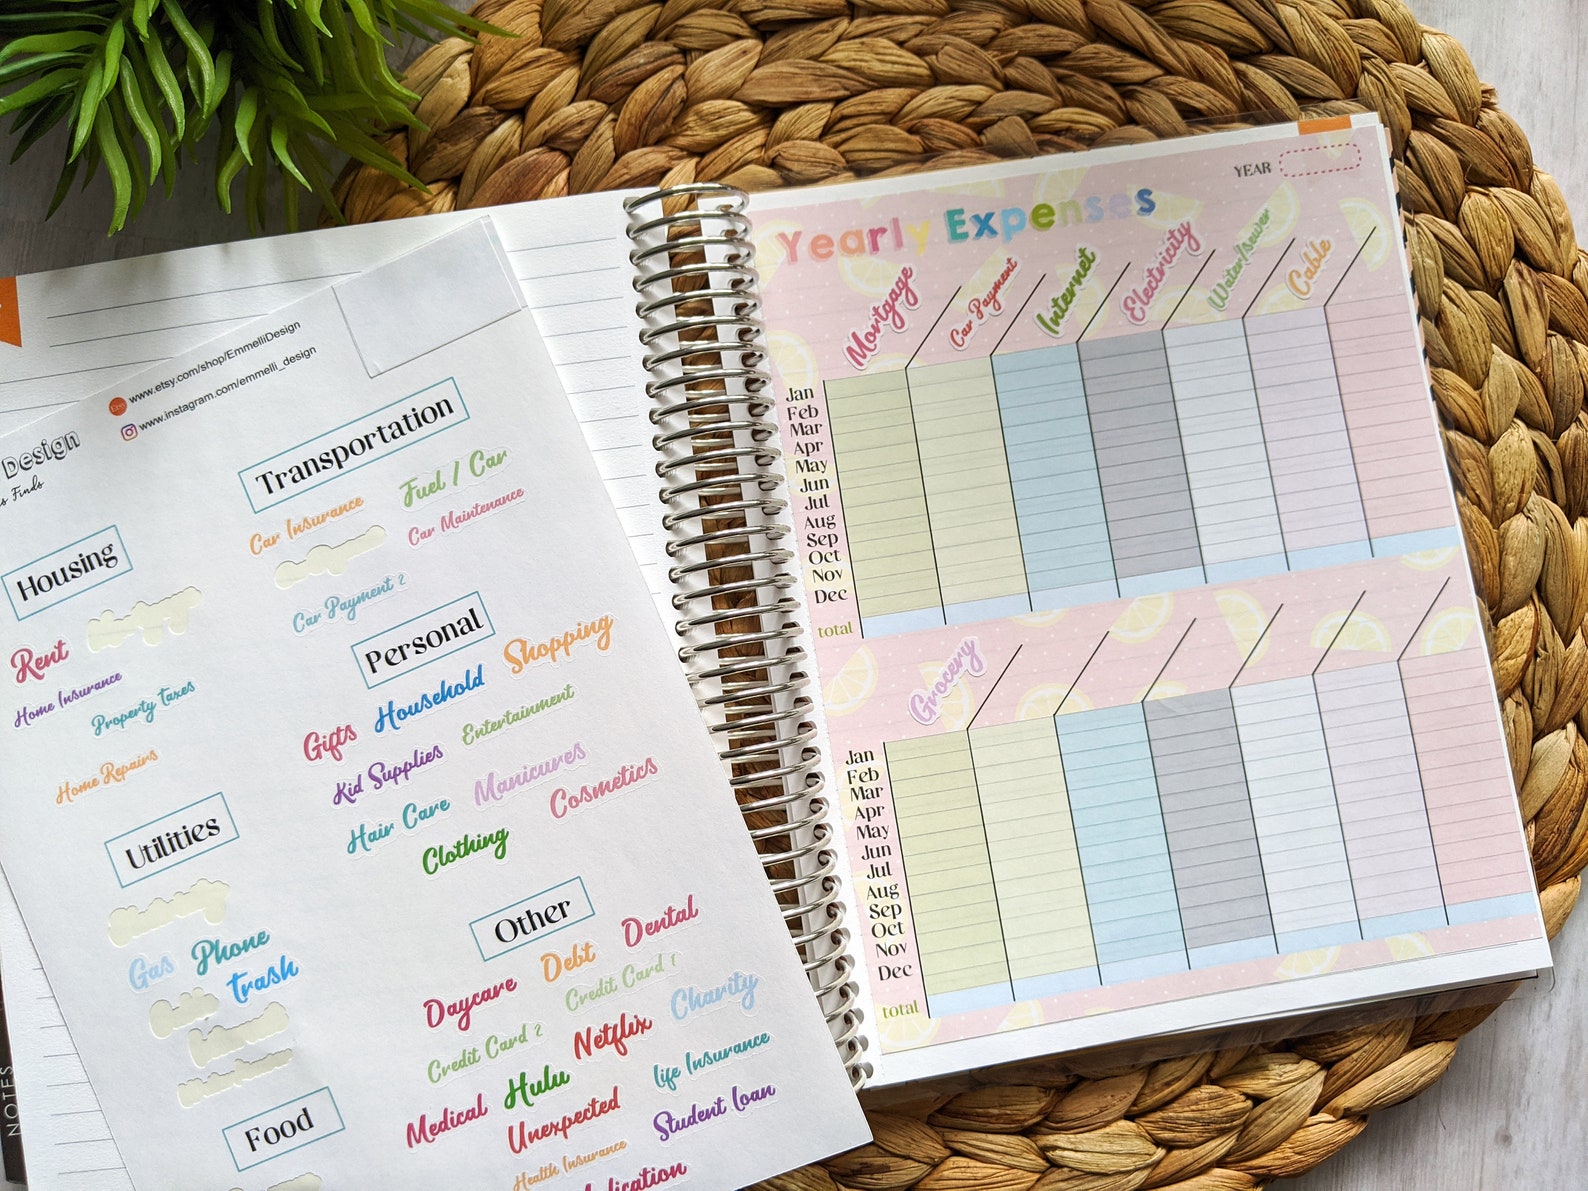 www.etsy.com/shop/EmmelliDesign
www.instagram.com/emmelli_design
Design
Finds
Housing
Rent
Home Insurance
Property Taxes
Home Repairs
Utilities
Gas
Phone
Trash
Food
Transportation
Car Insurance
Fuel / Car
Car Maintenance
Car Payment 2
Personal
Gifts
Household
Shopping
Kid Supplies
Entertainment
Hair Care
Manicures
Clothing
Cosmetics
Other
Daycare
Debt
Dental
Credit Card 1
Credit Card 2
Netflix
Charity
Medical
Hulu
life Insurance
Unexpected
Student loan
Health Insurance
NOTES
YEAR
Yearly Expenses
Mortgage
Car Payment
Internet
Electricity
Water/sewer
Cable
Jan
Feb
Mar
Apr
May
Jun
Jul
Aug
Sep
Oct
Nov
Dec
total
Grocery
Jan
Feb
Mar
Apr
May
Jun
Jul
Aug
Sep
Oct
Nov
Dec
total